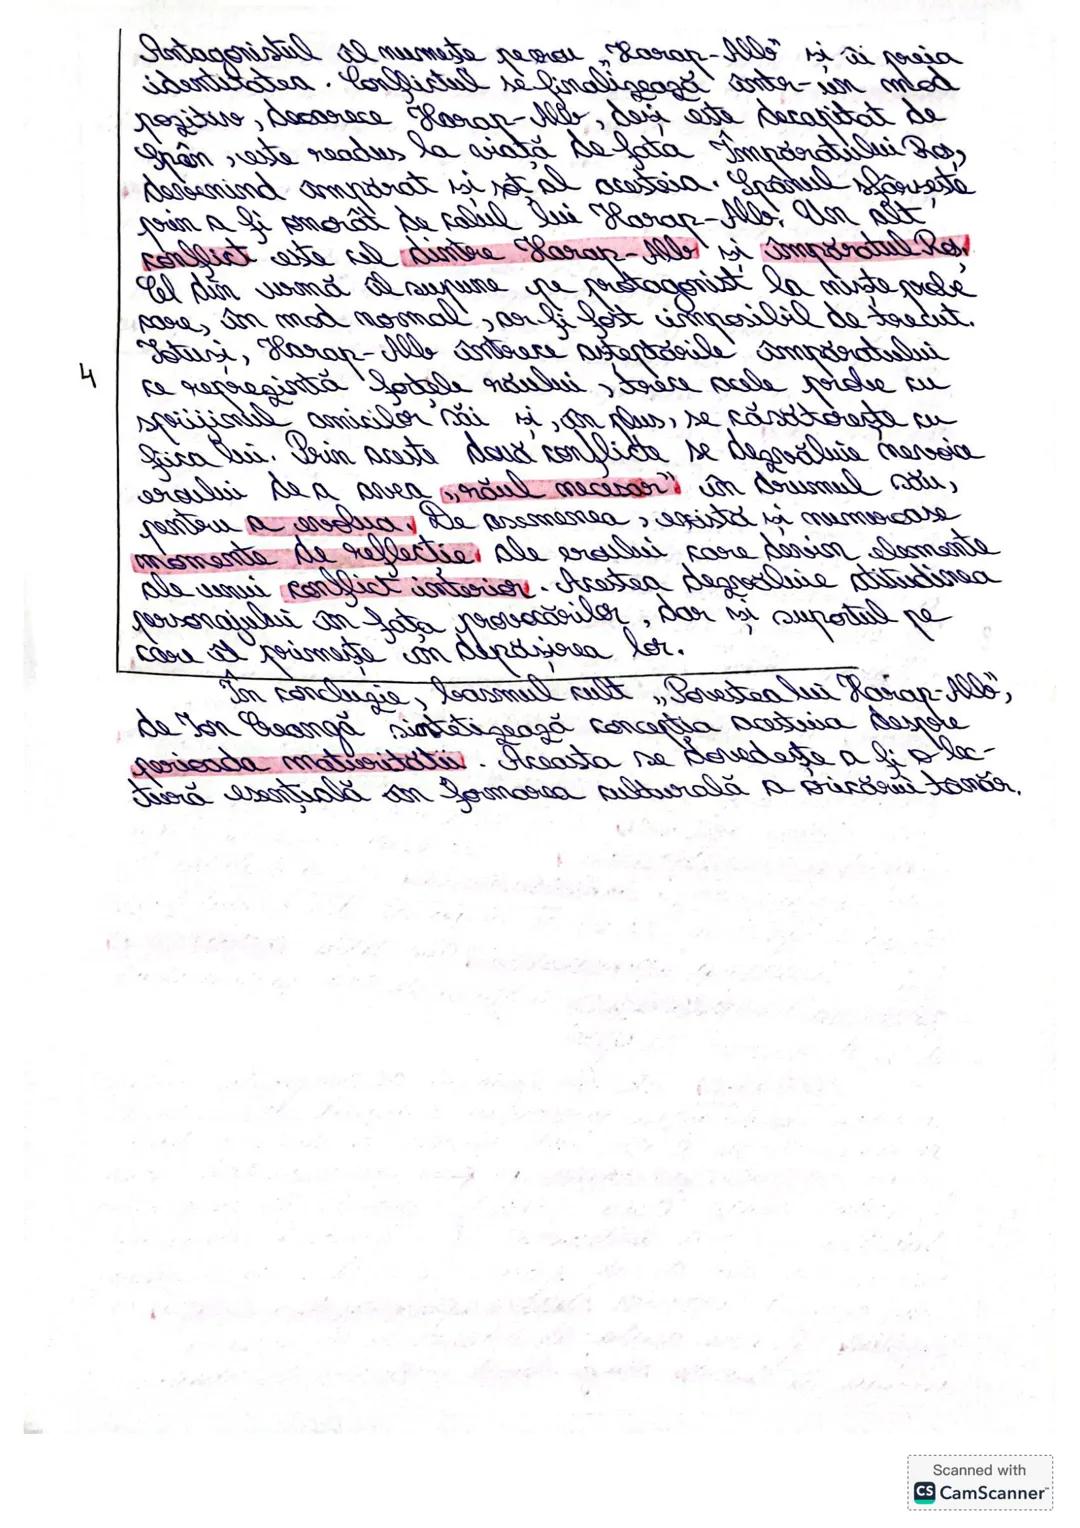 Antagonistul îl numește pe erou „Harap-Alb" și îi preia
identitatea. Conflictul se finalizează într-un mod
pozitiv, deoarece Harap-Alb, deși este decapitat de
Spân, este readus la viață de fata Împăratului Roș,
devenind împărat și soț al acesteia. Spânul sfârșește
prin a fi omorât de calul lui Harap-Alb. Un alt
conflict este cel dintre Harap-Alb și împăratul Roș.
Cel din urmă îl supune pe protagonist la niște probe
care, în mod normal, ar fi fost imposibil de trecut.
Totuși, Harap-Alb întrece așteptările împăratului
4 ce reprezintă forțele răului, trece acele probe cu
sprijinul amicilor săi și, în plus, se căsătorește cu
fiica lui. Prin aceste două conflicte se dezvăluie nevoia
eroului de a avea „răul necesar" în drumul său,
pentru a evolua. De asemenea, există și numeroase
momente de reflecție ale eroului care devin elemente
ale unui conflict interior. Acestea dezvăluie atitudinea
personajului în fața provocărilor, dar și suportul pe
care îl primește în depășirea lor.
În concluzie, basmul cult „Povestea lui Harap-Alb",
de Ion Creangă sintetizează concepția acestuia despre
perioada maturității. Aceasta se dovedește a fi o lec-
tură esențială în formarea culturală a oricărui tânăr.
Scanned with
CS CamScanner